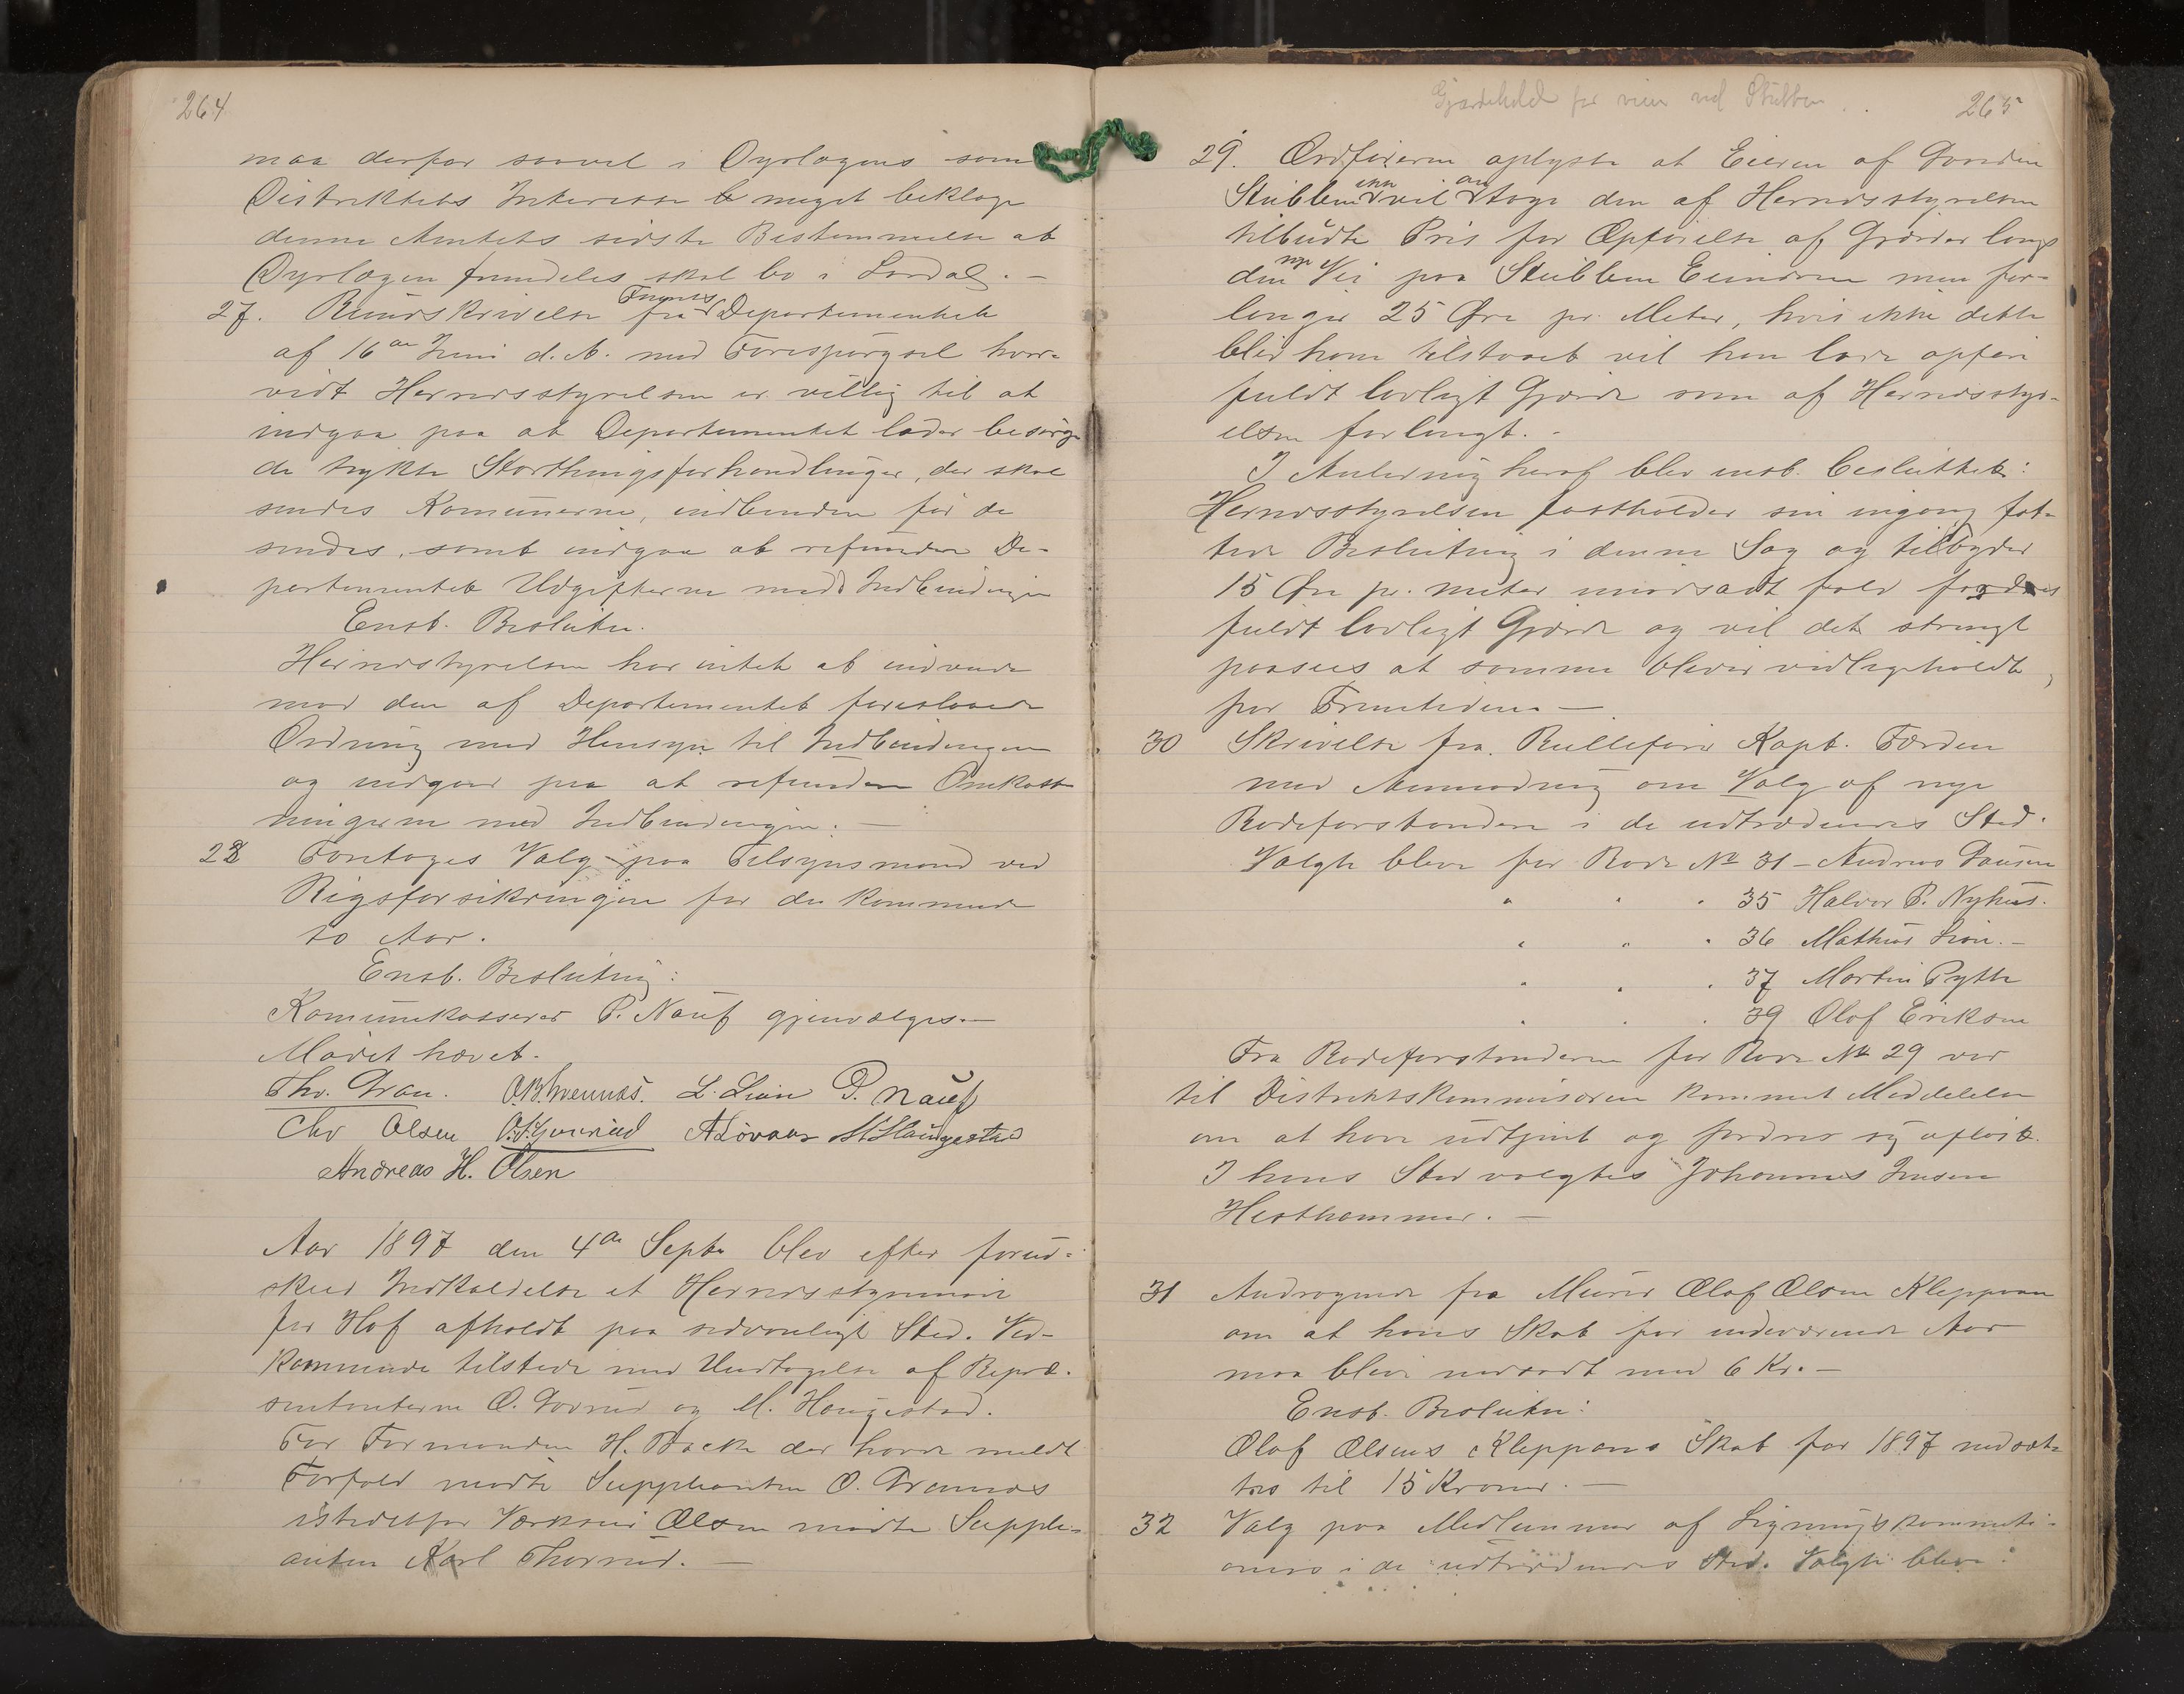 264
maa derfor saavel i Dyrlægens som
Distriktets Interesse meget beklage
denne Amtets sidste Bestemmelse at
Dyrlægen fremdeles skal bo i Lardal. –
27. Rundskrivelse fra Finants Departementet
af 16de Juni d. A. med Forespørgsel hvor-
vidt Herredsstyrelsen er villig til at
indgaa paa at Departementet lader besørge
de trykte Storthingsforhandlinger, der skal
sendes Komunerne, indbunden før de
sendes, samt indgaa at refundere De-
partementet Udgifterne med Indbindingen
Enst. Beslutn.
Herredstyrelsen har intet at indvende
mod den af Departementet foreslaaede
Ordning med Hensyn til Indbindingen
og indgaar paa at refundere Omkost
ningerne med Indbindingen. –
28 Foretoges Valg paa Tilsynsmand ved
Rigsforsikringen for de kommende
to Aar.
Enst. Beslutning:
Komunekasserer P. Nauf gjenvælges. –
Mødet hævet.
Thv. Gran. L. Lien P. Nauf
Chr Olsen A Løvaas M Haugestad
Andreas H. Olsen
Aar 1897 den 4de Septr blev efter forud-
skeed Indkaldelse et Herredsstyremøde
for Hof afholdt paa sedvanligt Sted. Ved-
kommende tilstede med Undtagelse af Repræ-
sentanterne O. Govrud og M. Haugestad.
For Formanden H. Backe der havde meldt
Forfald mødte Suppleanten O. Grennes
istedetfor Værkseier Olsen mødte Supple-
anten Karl Thorrud. –
Gjærdehold for veien ved Stubben
265
29. Ordføreren oplyste at Eieren af Gaarden
Stubben ikke vil antage den af Herredsstyrelsen
tilbudte Pris for Opførelse af Gjærder langs
den nye Vei paa Stubben Eiendom men for-
langer 25 Øre pr. Meter, hvis ikke dette
bliv ham tilstaaet vil han lade opføre
fuldt lovligt Gjærde som af Herredssty-
elsen forlangt. –
I Anledning heraf blev enst. besluttet:
Herredsstyrelsen fastholder sin engang fat-
tede Beslutning i denne Sag og tilbyder
15 Øre pr. meter modsadt fald fordres
fuldt lovligt Gjærde og vil det strengt
paasees at samme bliver vedligeholdt,
for Fremtiden. –
30 Skrivelse fra Rullefører Kapt. Færden
med Anmodning om Valg af nye
Rodeforstandere i de udtrædendes Sted.
Valgte blev for Rode No 31 – Andreas Pausen
" " " 35 Halvor P. Nyhus.
" " " 36 Mathias Lien. –
" " " 37 Martin Pytte
" " " 39 Olaf Eriksen
Fra Rodeforstanderen for Rode No 29 var
til Distriktskommisæren kommet Meddelelse
om at have udtjent og fordrer sig afløst.
I hans Sted valgtes Johannes Jensen
Hesthammer. –
31 Andragende fra Murer Olaf Olsen Kleppan
om at hans Skat for indeværende Aar
maa blive nedsadt med 6 Kr. –
Enst. Beslutn:
Olaf Olsens Kleppans Skat for 1897 nedsæt-
tes til 15 Kroner. –
32 Valg paa Medlemmer af Ligningskommisi-
onens i de udtrædendes Sted. Valgte blev: